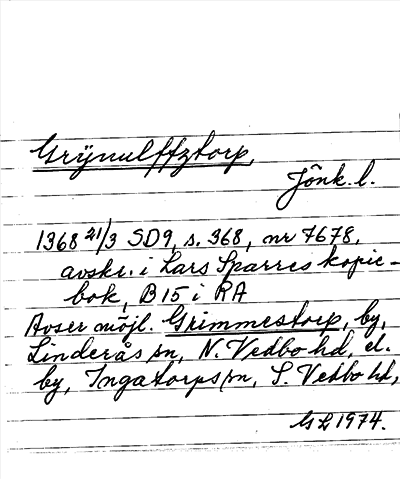 Grÿnulffztorp,
Jönk. l.
1368 21/3 SD9, s. 368, nr 7678,
avskr. i Lars Sparres kopie-
bok, B15 i RA
Avser möjl. Grimmestorp, by,
Linderås sn, N. Vedbo hd, el.
by, Ingatorps sn, S. Vedbo hd,
GL 1974.